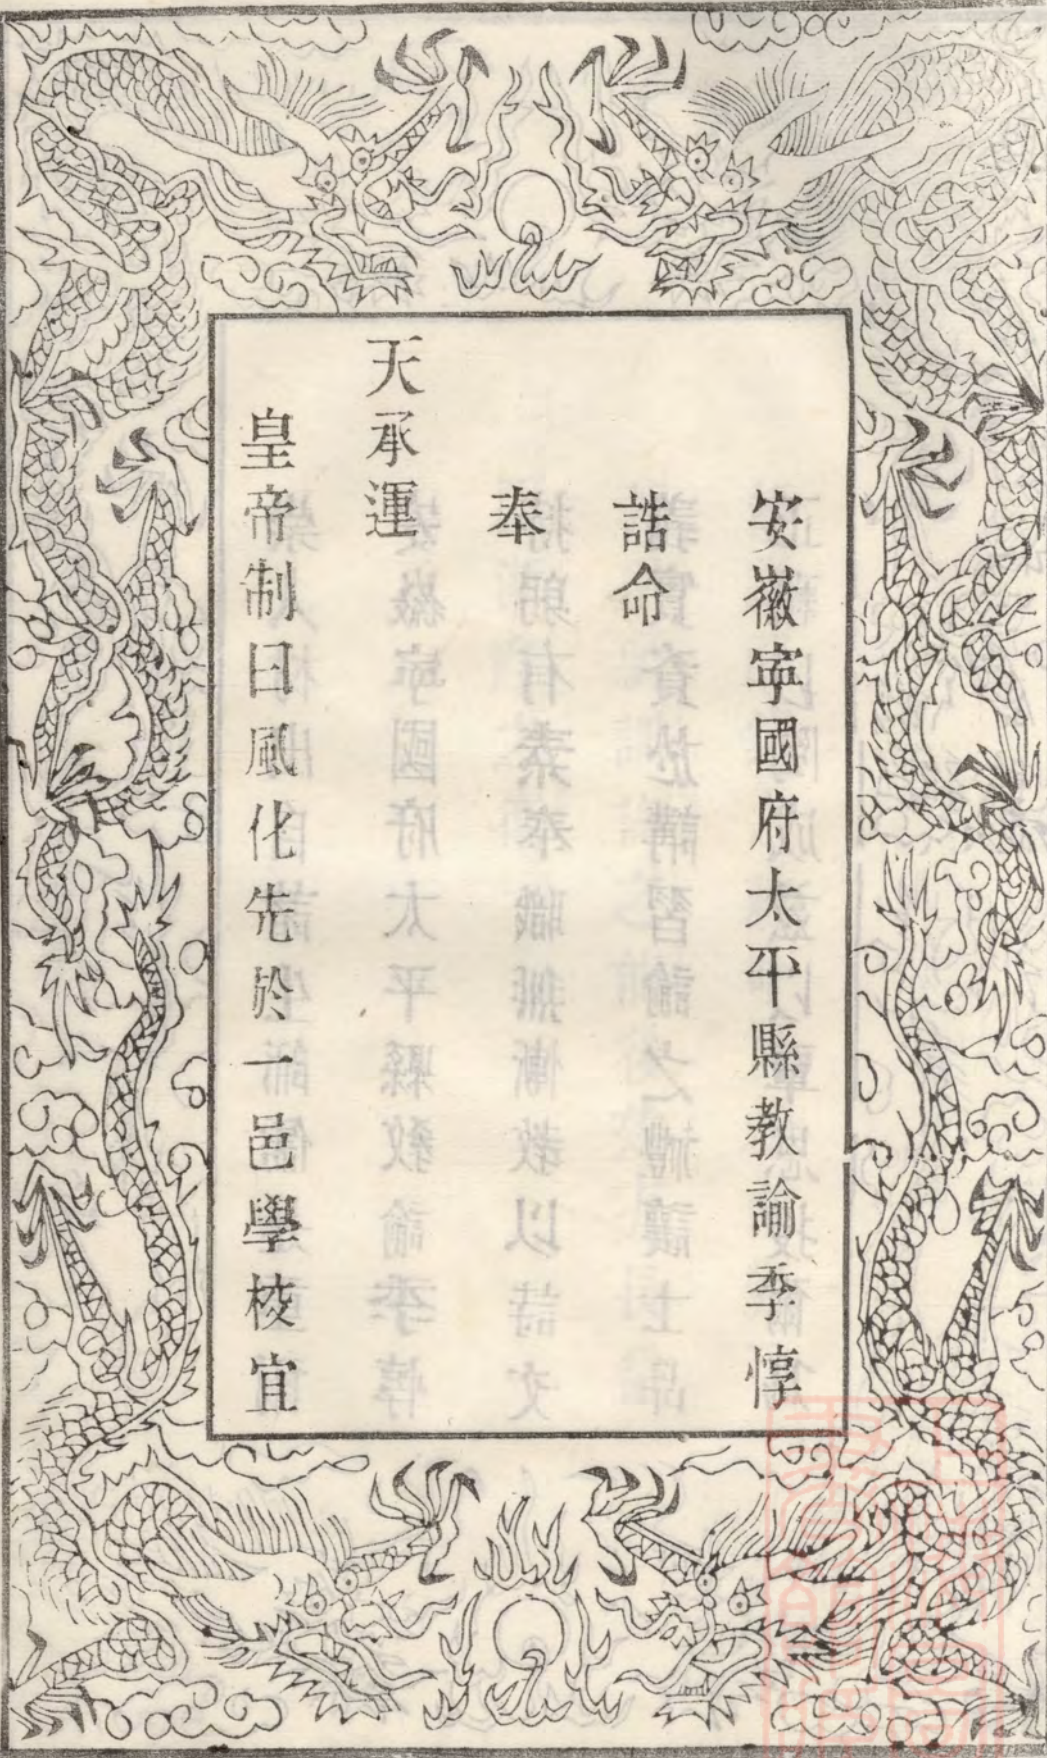 安徽寕國府太平縣教諭季惇
誥命
奉
天承運
皇帝制曰風化先於一邑學校宜